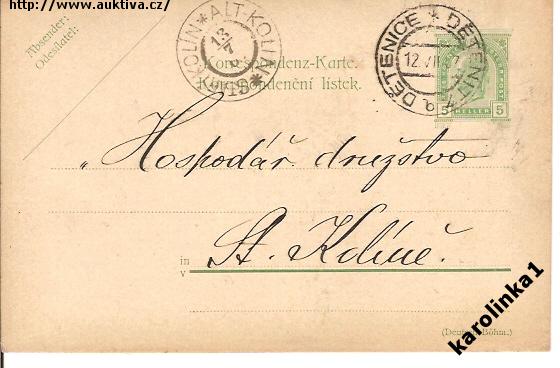 http://www.auktiva.cz/
Absender:
Odesílatel:
ALT-KOLIN
STARÝ KOLÍN
13
7
DĚTENICE * DĚTENITZ *
12 VII 07
Korrespondenz-Karte.
Korespondenční lístek.
5 HELLER 5
„Hospodář. družstvo
in
v
St. Kolíně.
(Deutsch-Böhm.)
karolinka1